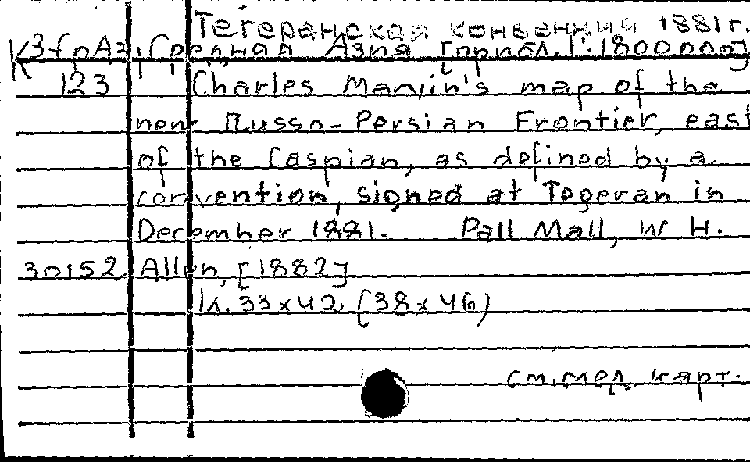 Тегеранская конвенция 1881г.
К 3-СрАз Средняя Азия [прибл. 1:1800000]
123 Charles Marvin's map of the
new Russo-Persian Frontier, east
of the Caspian, as defined by a
convention, signed at Tegeran in
December 1881. Pall Mall, W. H.
30152 Allen, [1882]
1 л. 33x42 (38x46)
см. след. карт.